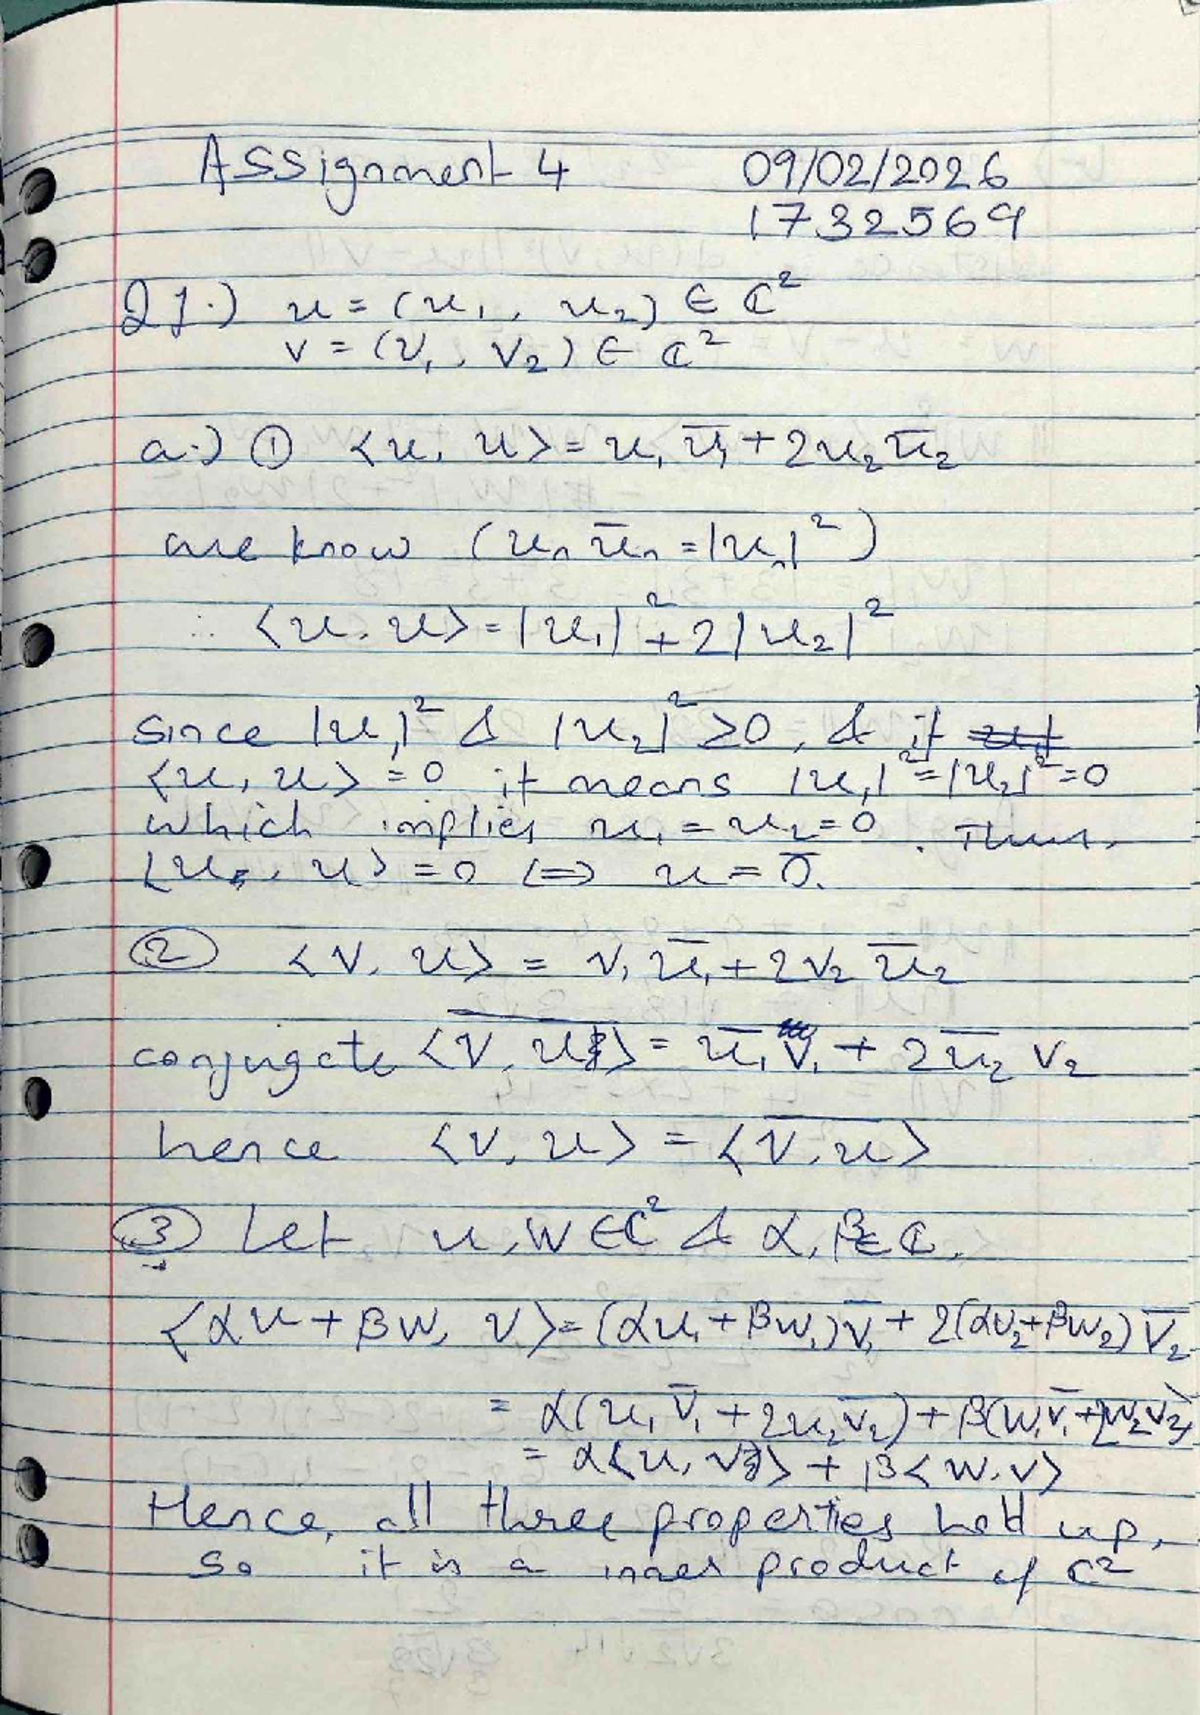 Assignment 4 09/02/2026
1732569
Q1.) u = (u₁, u₂) ∈ ℂ²
v = (v₁, v₂) ∈ ℂ²
a.) ① <u, u> = u₁ū₁ + 2u₂ū₂
we know (uₙ ūₙ = |uₙ|²)
∴ <u, u> = |u₁|² + 2|u₂|²
since |u₁|² & |u₂|² ≥ 0, & if
<u, u> = 0 it means |u₁|² = |u₂|² = 0
which implies u₁ = u₂ = 0. Thus,
<u, u> = 0 <=> u = 0̅.
② <v, u> = v₁ū₁ + 2v₂ū₂
conjugate <v̅,̅ ̅u̅> = ū₁v₁ + 2ū₂ v₂
hence <v, u> = <v̅,̅ ̅u̅>
③ Let u, w ∈ ℂ² & α, β ∈ ℂ.
<αu + βw, v> = (αu₁ + βw₁)v̅₁ + 2(αu₂ + βw₂)v̅₂
= α(u₁v̅₁ + 2u₂v̅₂) + β(w₁v̅₁ + 2w₂v̅₂)
= α<u, v> + β<w, v>
Hence, all three properties hold up,
so it is a inner product of ℂ²